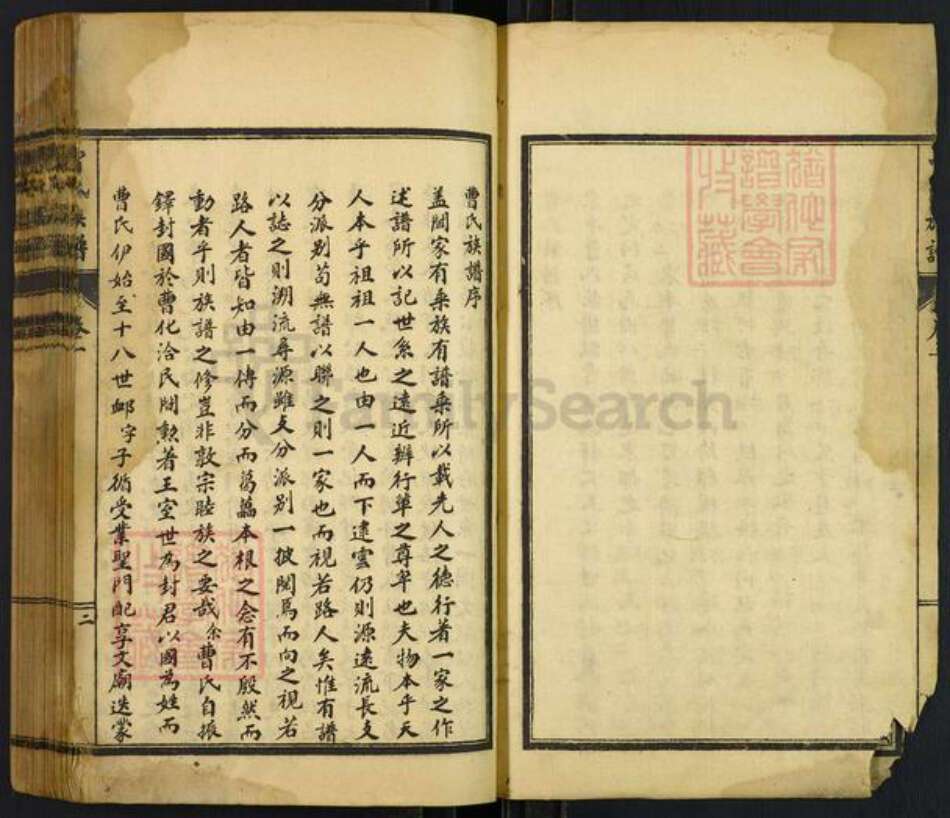 曹氏族譜序
蓋聞家有乘族有譜乘所以載先人之德行著一家之作
述譜所以記世系之遠近辨行輩之尊卑也夫物本乎天
人本乎祖祖一人也由一人而下逮雲仍則源遠流長支
分派别苟無譜以聯之則一家也而視若路人矣惟有譜
以誌之則溯流尋源雖支分派别一披閱焉而向之視若
路人者皆知由一傳而分而葛藟本根之念有不殷然而
動者乎則族譜之修豈非敦宗睦族之要哉余曹氏自振
鐸封國於曹化洽民間勲著王室世為封君以國為姓而
曹氏伊始至十八世邺字子循受業聖門配享文廟迭蒙
族譜
卷一
二
FamilySearch
譜學會
收藏